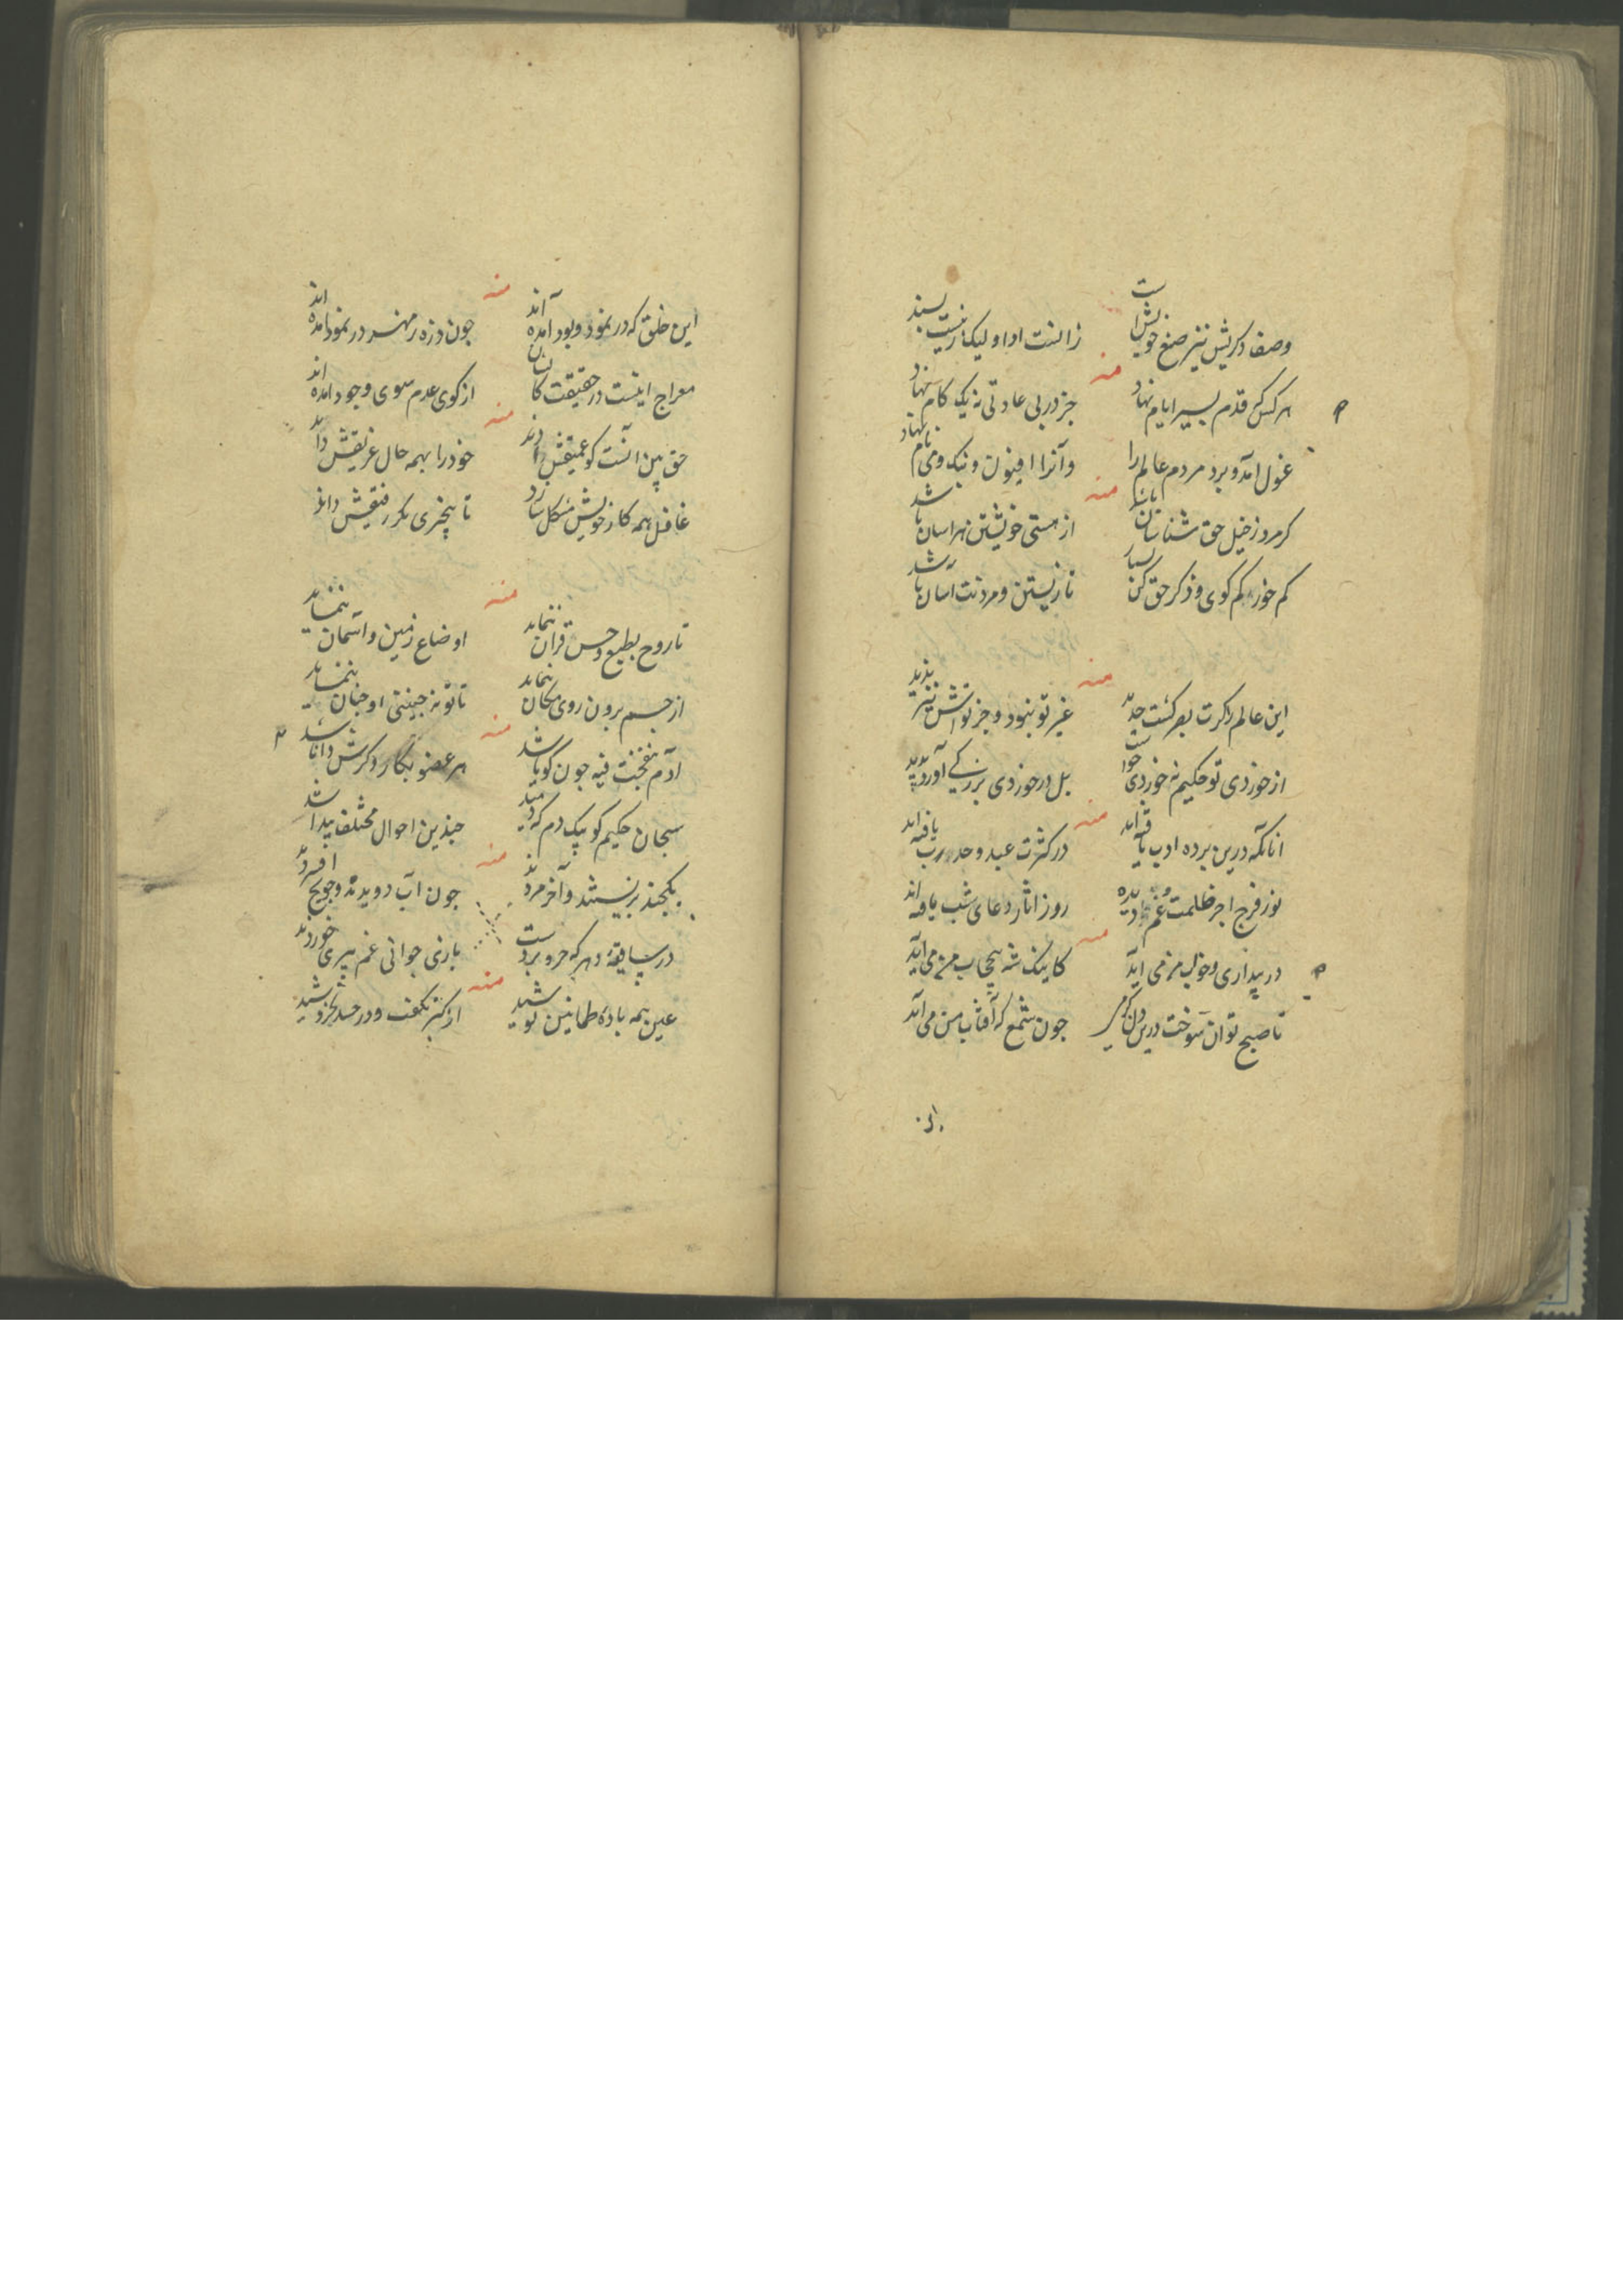 وصف دکریش نیز صنع خویش است زانست ادا و لیک نیست پسند
منه
هرکس که قدم بسیر ایام نهاد جز در پی عادتی نه یک کام نهاد
غول امد و برد مردم عالم را وآنرا افیون و بنک و می نام نهاد
منه
کرمرد ز خیل حق شناسان باشد از هستی خویشتن هراسان باشد
کم خور کم کوی و ذکر حق کن بسیار تا زیستن و مردنت آسان باشد
منه
این عالم را کرت بصر کشت حدید غیر تو نبود و جز تواش نیز ندید
از خوردی تو حکیم نه خوردی خواست بل در خوردی بزرکی آورد پدید
منه
انانکه درین پرده ادب یافته اند در کثرت عبد وحدت رب یافته اند
نور فرج اجر ظلمت غم دیده روز اثار دعای شب یافته اند
منه
در بیداری و خواب من می اید کاینک شه بیحجاب من می اید
تا صبح توان سوخت درین چون شمع که آفتاب من می آید
منه
این خلق که در نمود و بود آمده اند چون ذره ز مهر در نمود امده اند
معراج اینست در حقیقت کانسان از کوی عدم سوی وجود امده اند
منه
حق بین آنست کو عمیقش داند خود را بهمه حال غریقش داند
غافل همه کار خویش مشکل سازد تا بیخبری مکر رفیقش داند
منه
تا روح بطبع و حس قران ننماید اوضاع زمین و آسمان ننماید
از جسم برون روی مکان ننماید تا تو نه چنینی او چنان ننماید
منه
آدم بنفخت فیه چون کویا شد هر عضو بکار دکرش دانا شد
سبحان حکیم کو بیک دم که دمید چندین احوال مختلف پیدا شد
منه
یکچند بزیستند و آخر مردند چون آب دویدند و چو یخ افسردند
در سابقه دهر که حرو بردست بازی جوانی غم پیری خوردند
منه
عین همه باده طمانین نوشید از کبر نکفت و در حسد نخروشید